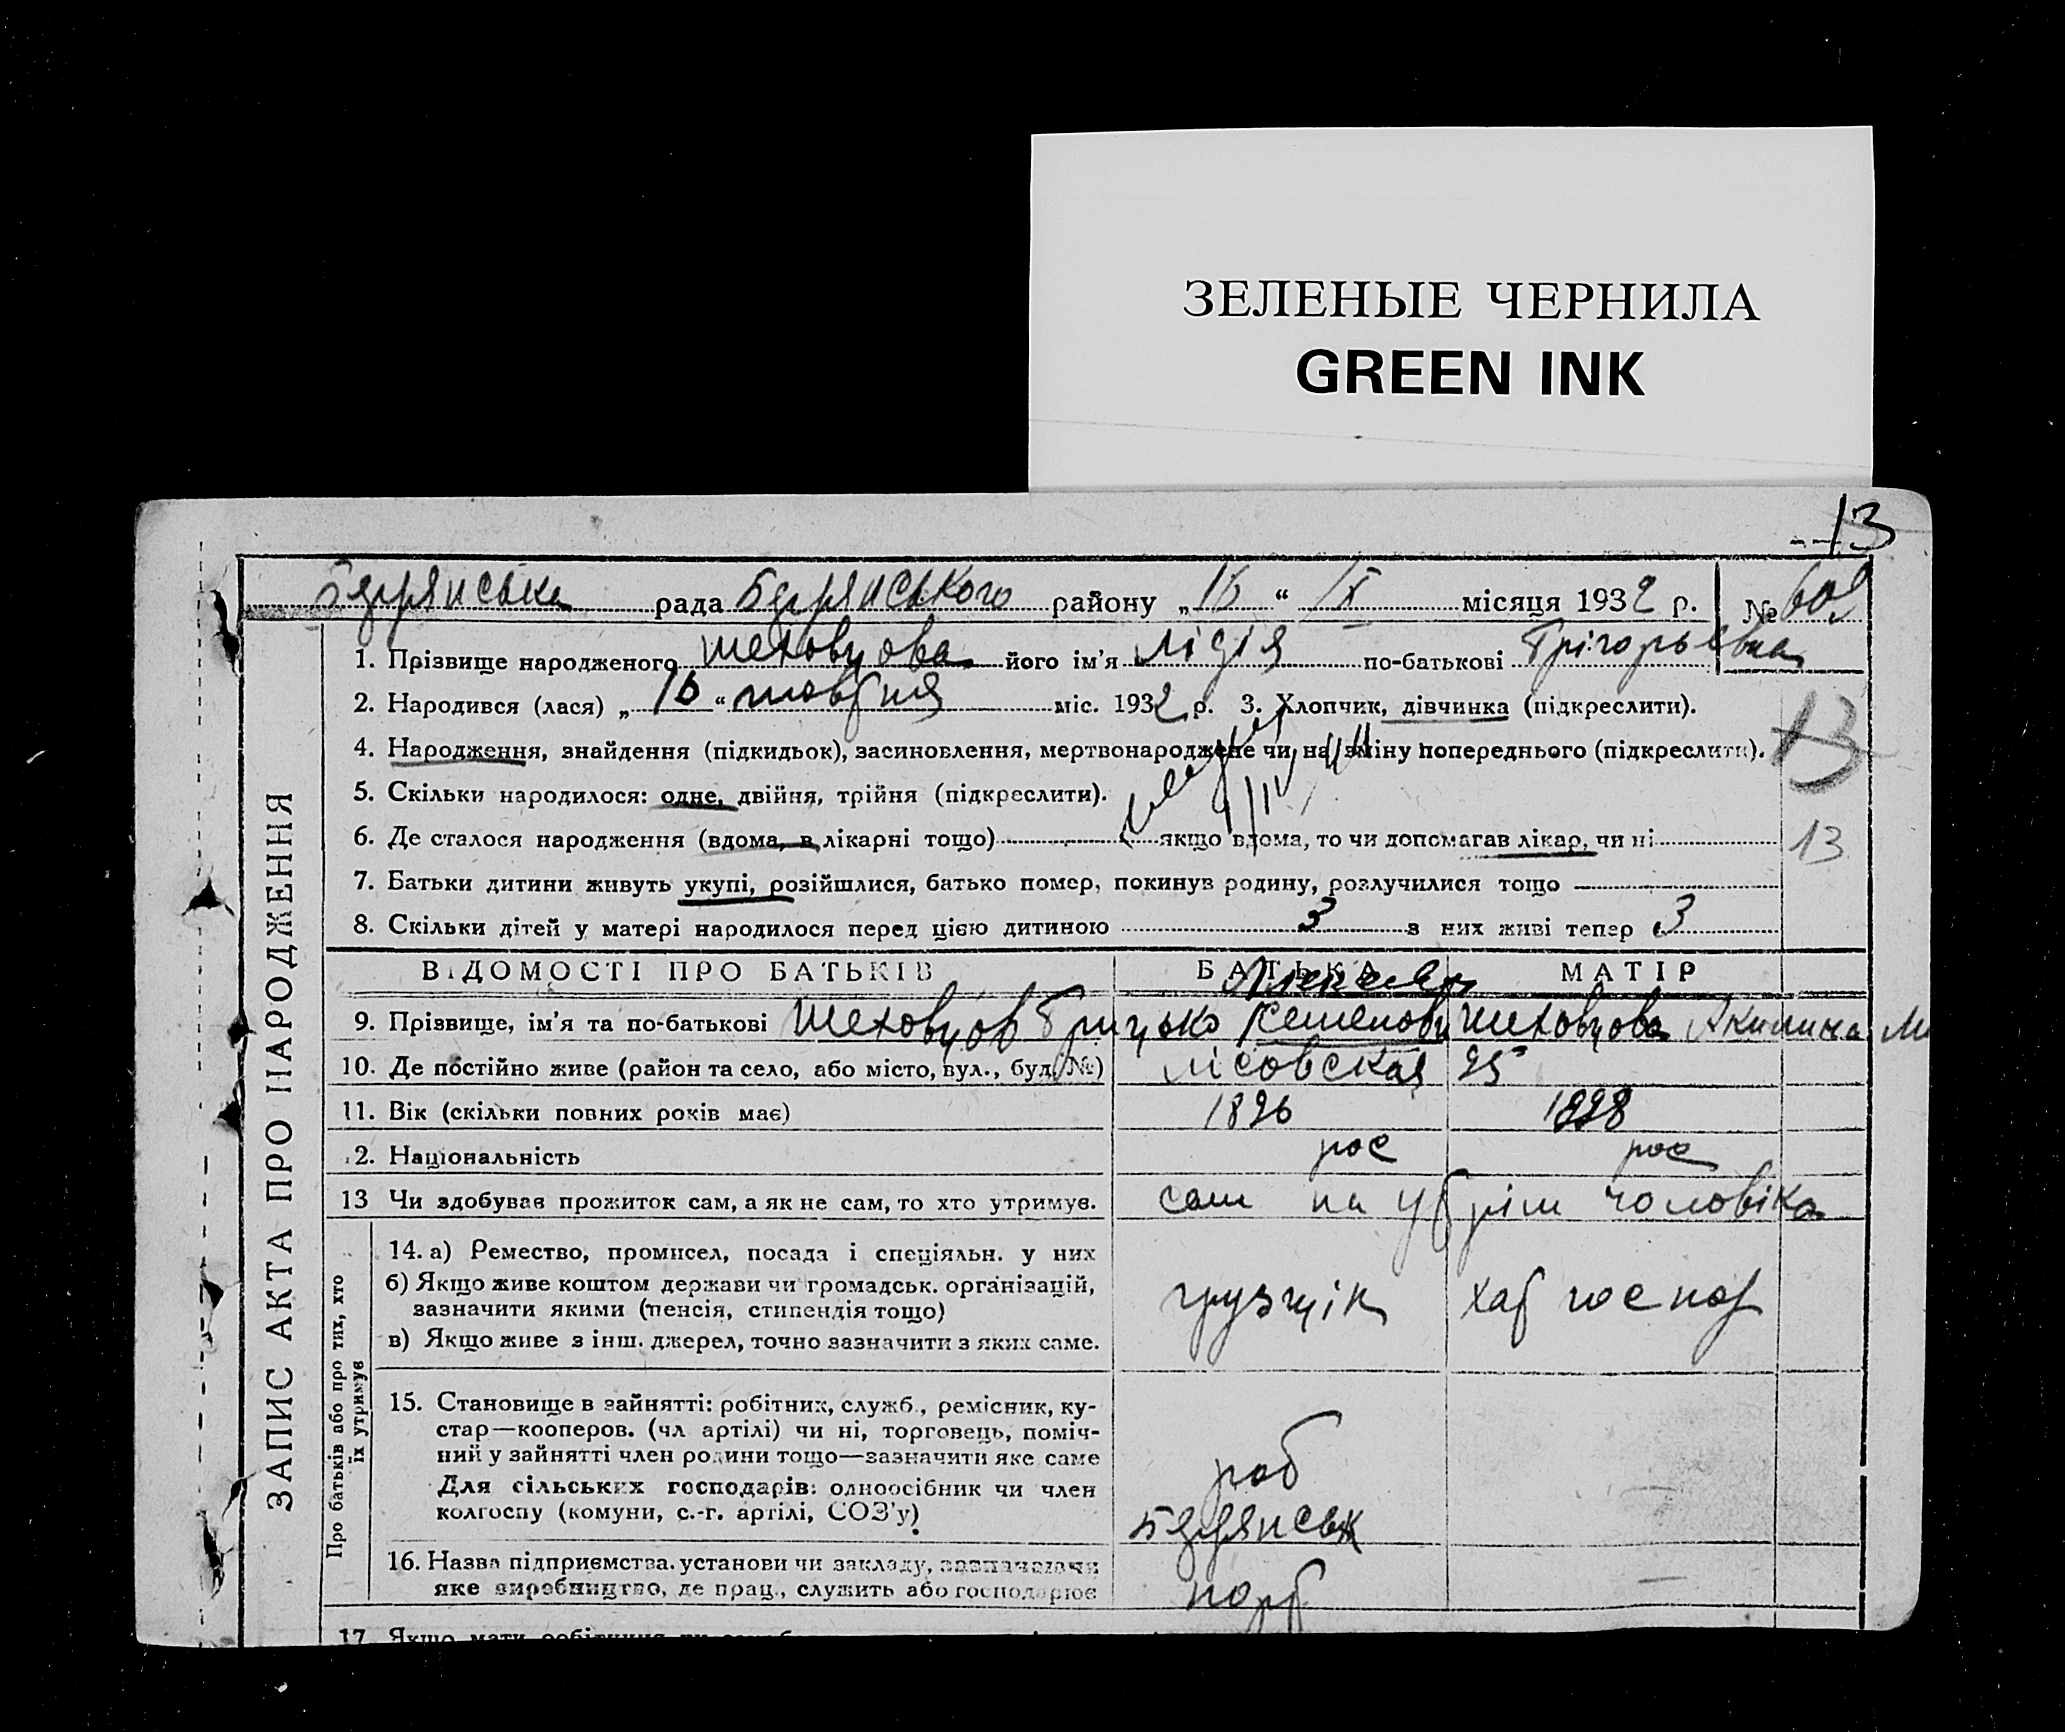 ЗЕЛЕНЫЕ ЧЕРНИЛА
GREEN INK
13
Бердянська рада Бердянського району „16“ IX місяця 1932 р. № 609
1. Прізвище народженого Шеховцова його ім'я Лідія по-батькові Грігорьевна
2. Народився (лася) „16“ жовтня міс. 1932 р. 3. Хлопчик, дівчинка (підкреслити).
13
4. Народження, знайдення (підкидьок), засиновлення, мертвонароджене чи на зміну попереднього (підкреслити).
5. Скільки народилося: одне, двійня, трійня (підкреслити).
6. Де сталося народження (вдома, в лікарні тощо) якщо вдома, то чи допомагав лікар, чи ні
13
7. Батьки дитини живуть укупі, розійшлися, батько помер, покинув родину, розлучилися тощо
8. Скільки дітей у матері народилося перед цією дитиною 3 з них живі тепер 3
ЗАПИС АКТА ПРО НАРОДЖЕННЯ
ВІДОМОСТІ ПРО БАТЬКІВ БАТЬКА МАТІР
9. Прізвище, ім'я та по-батькові Шеховцов Грицько Шеховцова Акилина
10. Де постійно живе (район та село, або місто, вул., буд. №) Лісовская 25
11. Вік (скільки повних років має) 1896 1898
2. Національність рос рос
13 Чи здобував прожиток сам, а як не сам, то хто утримує. сам на утрім чоловіка
Про батьків або про тих, хто їх утримує
14. а) Ремество, промисел, посада і спеціяльн. у них
б) Якщо живе коштом держави чи громадськ. організацій,
зазначити якими (пенсія, стипендія тощо) грузчік хат господ
в) Якщо живе з інш. джерел, точно зазначити з яких саме.
15. Становище в зайнятті: робітник, служб., ремісник, ку-
стар—кооперов. (чл артілі) чи ні, торговець, поміч-
ний у зайнятті член родини тощо—зазначити яке саме
Для сільських господарів: одноосібник чи член
колгоспу (комуни, с.-г. артілі, СОЗ'у)
роб
Бердянськ
16. Назва підприємства, установи чи закладу, зазначаючи
яке виробництво, де прац., служить або господарює
порт
17. Якщо мати робітниця чи